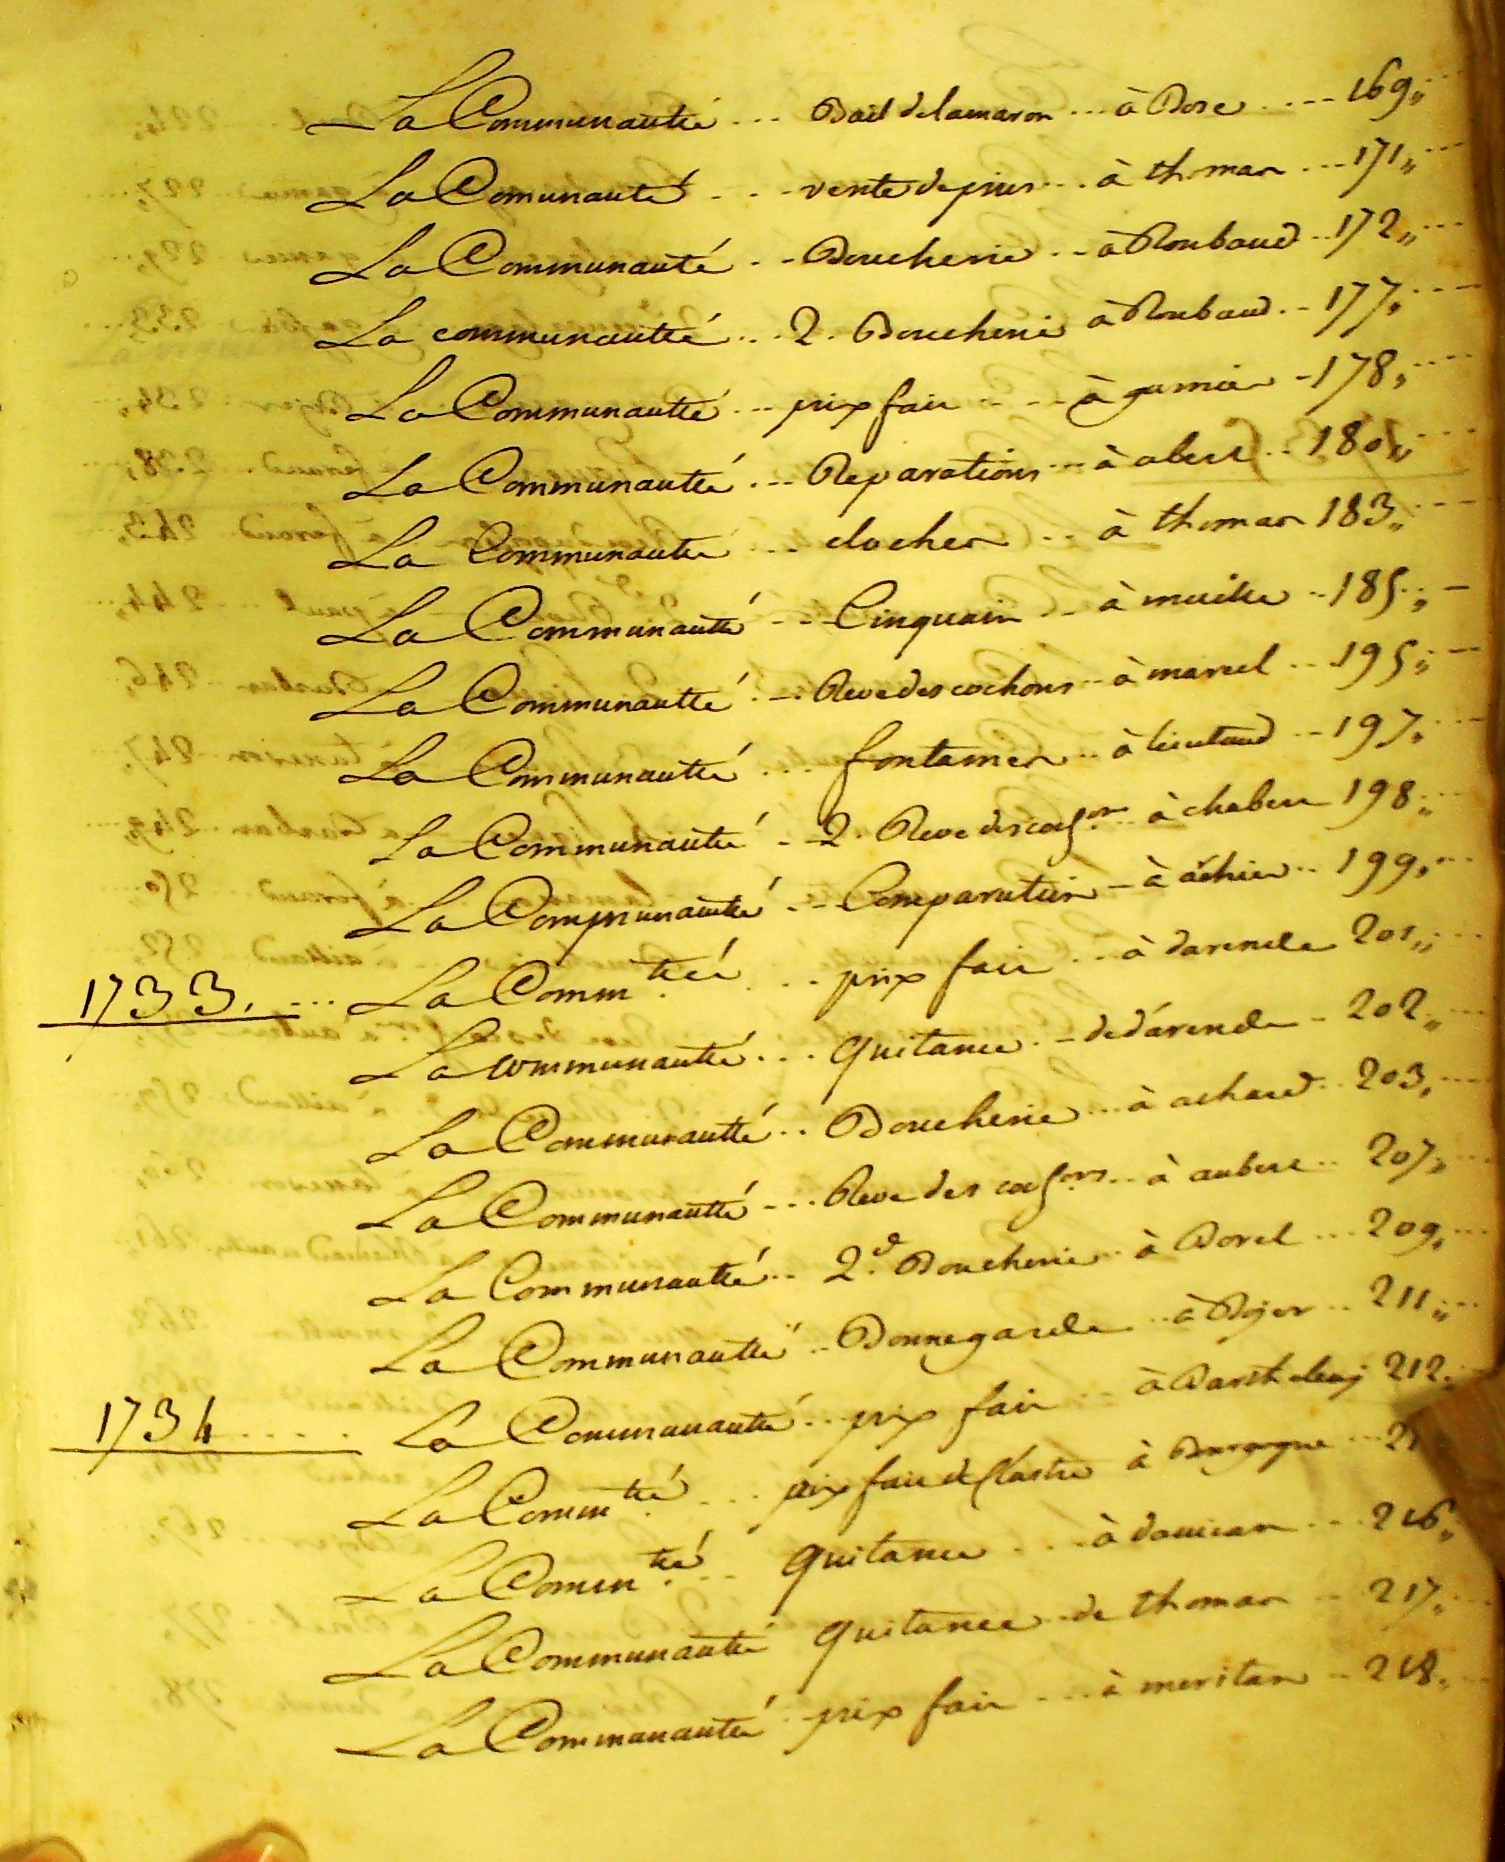 La Communautté ... Bail de lamaron ... à Bore .... 169,,
La Comunauté ... vente de pins ... à thoman ... 171,,
La Communauté .. Boucherie .. à Roubaud .. 172,,
La communautté ... 2. Boucherie à Roubaud .. 177,,
La Communautté ... prix fait .... à garnier - 178,,
La Communautté ... Reparations ... à ... 180,,
La Communautté ... clocher .. à thoman 183,,
La Communautté ... Cinquain .. à ... 185,,
La Communautté ... Reve des cochons .. à marcel ... 195,,
La Communautté ... fontainier .. à lieutaud .. 197,,
La Communautté .. 2. Reve des coch.ons .. à chabert 198,,
La Communautté .. Comparution - à ... 199,,
1733. ... La Comm.tté ... prix fait ... à darende 201,,
La communautté ... Quitance .. de d'arende .. 202,,
La Communautté .. Boucherie ... à achard .. 203,,
La Communautté ... Reve des coch.ons .. à aubert .. 207,,
La Communautté .. 2.e Boucherie .. à Borel ... 209,,
La Communautté .. Bonnegarde .. à Bojer .. 211,,
1734 .... La Communautté .. prix fait ... à Barthelemj 212,,
La Comm.tté ... prix fait de ... à ... 21
La Comm.tté ... Quitance ... à damian ... 216,,
La Communautté Quitance .. de thoman .. 217,,
La Communautté prix fait ... à meritan .. 218,,